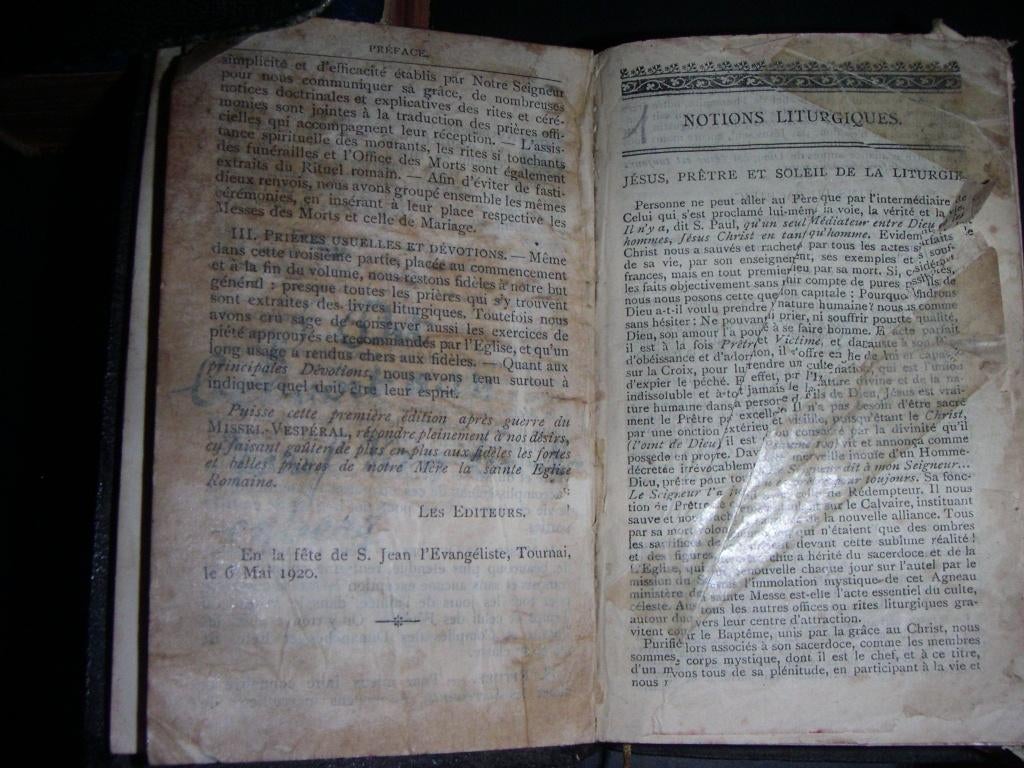 PRÉFACE.
simplicité et d'efficacité établis par Notre Seigneur
pour nous communiquer sa grâce, de nombreuses
notices doctrinales et explicatives des rites et céré-
monies sont jointes à la traduction des prières offi-
cielles qui accompagnent leur réception. — L'assis-
tance spirituelle des mourants, les rites si touchants
des funérailles et l'Office des Morts sont également
extraits du Rituel romain. — Afin d'éviter de fasti-
dieux renvois, nous avons groupé ensemble les mêmes
cérémonies, en insérant à leur place respective les
Messes des Morts et celle de Mariage.
III. PRIÈRES USUELLES ET DÉVOTIONS. — Même
dans cette troisième partie, placée au commencement
et à la fin du volume, nous restons fidèles à notre but
général : presque toutes les prières qui s'y trouvent
sont extraites des livres liturgiques. Toutefois nous
avons cru sage de conserver aussi les exercices de
piété approuvés et recommandés par l'Eglise, et qu'un
long usage a rendus chers aux fidèles. — Quant aux
principales Dévotions, nous avons tenu surtout à
indiquer quel doit être leur esprit.
Puisse cette première édition après guerre du
MISSEL-VESPÉRAL, répondre pleinement à nos désirs,
en faisant goûter de plus en plus aux fidèles les fortes
et belles prières de notre Mère la sainte Eglise
Romaine.
LES EDITEURS.
En la fête de S. Jean l'Evangéliste, Tournai,
le 6 Mai 1920.
1
NOTIONS LITURGIQUES.
JÉSUS, PRÊTRE ET SOLEIL DE LA LITURGIE
Personne ne peut aller au Père que par l'intermédiaire de
Celui qui s'est proclamé lui-même la voie, la vérité et la
Il n'y a, dit S. Paul, qu'un seul Médiateur entre Dieu
hommes, Jésus Christ en tant qu'homme.
Christ nous a sauvés et rachetés par tous les actes
de sa vie, par son enseignement, ses exemples et
frances, mais en tout premier lieu par sa mort. Si,
les faits objectivement sans
nous nous posons cette question capitale : Pourquoi
Dieu a-t-il voulu prendre nature humaine?
sans hésiter : Ne pouvant prier, ni souffrir
Dieu, son amour l'a poussé à se faire homme.
il est à la fois Prêtre et Victime, et
d'obéissance et d'adoration, il s'offre en
sur la Croix, pour lui rendre un culte
d'expier le péché. En effet, par
indissoluble et à tout jamais
ture humaine dans la personne du Fils de Dieu, Jésus est vrai-
ment le Prêtre par excellence. Il n'a pas besoin d'être sacré
par une onction extérieure et visible, puisqu'étant le Christ,
(l'oint de Dieu) il est consacré par la divinité qu'il
possède en propre. vit et annonça comme
décrétée irrévocablement merveille inouïe d'un Homme-
Dieu, prêtre pour Seigneur dit à mon Seigneur...
Le Seigneur l'a pour toujours. Sa fonc-
tion de Prêtre de Rédempteur. Il nous
sauve et nous sur le Calvaire, instituant
par sa mort la nouvelle alliance. Tous
les sacrifices qui n'étaient que des ombres
et des figures, devant cette sublune réalité!
L'Eglise, qui a hérité du sacerdoce et de la
mission du renouvelle chaque jour sur l'autel par le
ministère de l'immolation mystique de cet Agneau
céleste. sainte Messe est-elle l'acte essentiel du culte,
autour duquel tous les autres offices ou rites liturgiques gra-
vitent vers leur centre d'attraction.
Purifiés le Baptême, unis par la grâce au Christ, nous
sommes lors associés à son sacerdoce, comme les membres
d'un corps mystique, dont il est le chef, et à ce titre,
nous tous de sa plénitude, en participant à la vie et